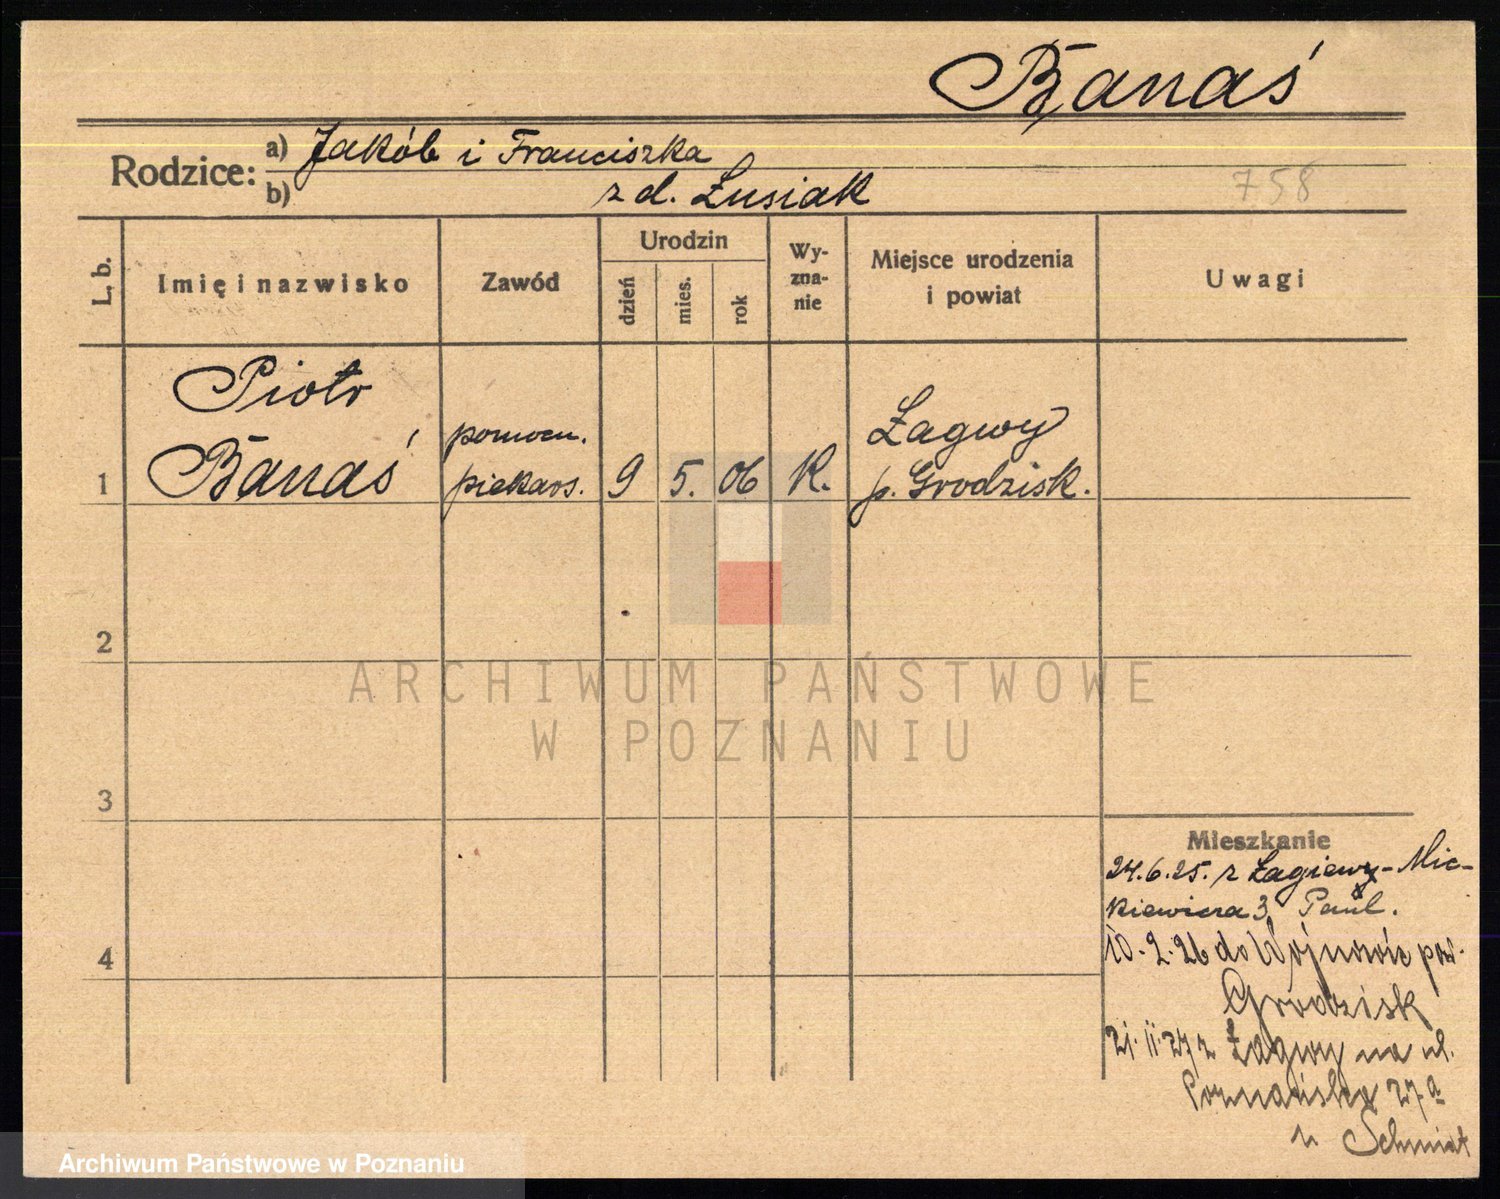 Banaś
Rodzice: a) Jakób i Franciszka
b) z d. Łusiak
758
L. b.
Imię i nazwisko
Zawód
Urodzin
dzień
mies.
rok
Wy-
zna-
nie
Miejsce urodzenia
i powiat
Uwagi
Piotr
Banaś
pomocn.
piekars.
9
5.
06
K.
Łagwy
p. Grodzisk.
1
2
3
4
Mieszkanie
24.6.25. z Łagiewy - Mic-
kiewicza 3, Paul.
10.2.26 do Wojnowic pow.
Grodzisk
21.11.27 z Łagwy na ul.
Poznańska 27a
u Schmidt
ARCHIWUM PAŃSTWOWE
W POZNANIU
Archiwum Państwowe w Poznaniu